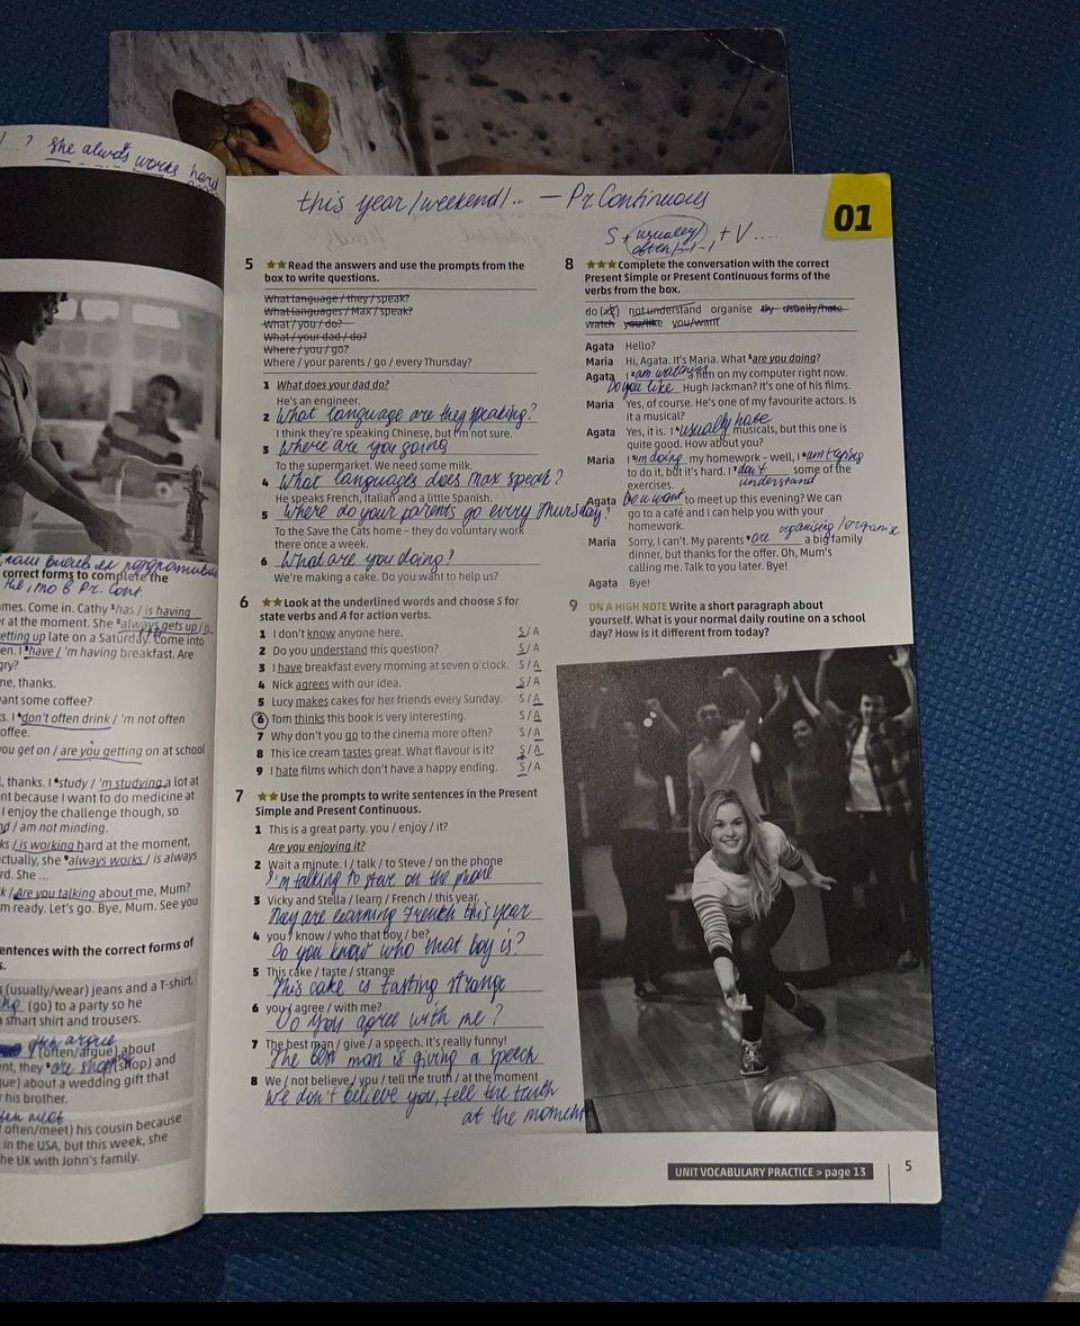 she always works hard
this year/weekend/.. — Pr. Continuous
01
S + usually/ often/--- + V ....
5 ★★ Read the answers and use the prompts from the
box to write questions.
What language / they / speak?
What languages / Max / speak?
What / you / do?
What / your dad / do?
Where / you / go?
Where / your parents / go / every Thursday?
1 What does your dad do?
He's an engineer.
2 What language are they speaking?
I think they're speaking Chinese, but I'm not sure.
3 Where are you going
To the supermarket. We need some milk.
4 What languages does Max speak?
He speaks French, Italian and a little Spanish.
5 Where do your parents go every Thursday?
To the Save the Cats home – they do voluntary work
there once a week.
6 What are you doing?
We're making a cake. Do you want to help us?
6 ★★ Look at the underlined words and choose S for
state verbs and A for action verbs.
1 I don't know anyone here. S / A
2 Do you understand this question? S / A
3 I have breakfast every morning at seven o'clock. S / A
4 Nick agrees with our idea. S / A
5 Lucy makes cakes for her friends every Sunday. S / A
6 Tom thinks this book is very interesting. S / A
7 Why don't you go to the cinema more often? S / A
8 This ice cream tastes great. What flavour is it? S / A
9 I hate films which don't have a happy ending. S / A
7 ★★ Use the prompts to write sentences in the Present
Simple and Present Continuous.
1 This is a great party. you / enjoy / it?
Are you enjoying it?
2 Wait a minute. I / talk / to Steve / on the phone
I'm talking to Steve on the phone
3 Vicky and Stella / learn / French / this year
They are learning French this year
4 you / know / who that boy / be?
Do you know who that boy is?
5 This cake / taste / strange
This cake is tasting strange
6 you / agree / with me?
Do you agree with me?
7 The best man / give / a speech. It's really funny!
The best man is giving a speech
8 We / not believe / you / tell the truth / at the moment
We don't believe you, tell the truth
at the moment
8 ★★★ Complete the conversation with the correct
Present Simple or Present Continuous forms of the
verbs from the box.
do (x2) not understand organise try usually/hate
watch you/like you/want
Agata Hello?
Maria Hi, Agata. It's Maria. What ¹are you doing?
Agata I ²am watching a film on my computer right now.
Do you like Hugh Jackman? It's one of his films.
Maria Yes, of course. He's one of my favourite actors. Is
it a musical?
Agata Yes, it is. I ⁴usually hate musicals, but this one is
quite good. How about you?
Maria I ⁵'m doing my homework – well, I ⁶am trying
to do it, but it's hard. I ⁷don't understand some of the
exercises.
Agata Do u want to meet up this evening? We can
go to a café and I can help you with your
homework.
organising / organise
Maria Sorry, I can't. My parents ⁹are a big family
dinner, but thanks for the offer. Oh, Mum's
calling me. Talk to you later. Bye!
Agata Bye!
9 ON A HIGH NOTE Write a short paragraph about
yourself. What is your normal daily routine on a school
day? How is it different from today?
UNIT VOCABULARY PRACTICE > page 13
5
correct forms to complete the
mes. Come in. Cathy ¹has / is having
r at the moment. She ²always gets up / is
etting up late on a Saturday. Come into
en. I ³have / 'm having breakfast. Are
gry?
ne, thanks.
ant some coffee?
s. I ⁴don't often drink / 'm not often
offee.
you get on / are you getting on at school
, thanks. I ⁶study / 'm studying a lot at
nt because I want to do medicine at
I enjoy the challenge though, so
nd / am not minding.
ks / is working hard at the moment,
ctually, she ⁹always works / is always
rd. She ...
k / Are you talking about me, Mum?
m ready. Let's go. Bye, Mum. See you
entences with the correct forms of
s.
(usually/wear) jeans and a T-shirt,
(go) to a party so he
smart shirt and trousers.
often argue
(often/argue) about
nt, they ⁴are shop (shop) and
ue) about a wedding gift that
his brother.
often meet
often/meet) his cousin because
in the USA, but this week, she
he UK with John's family.